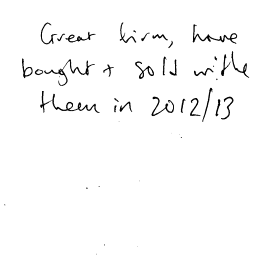 Great firm, have
bought + sold with
them in 2012/13